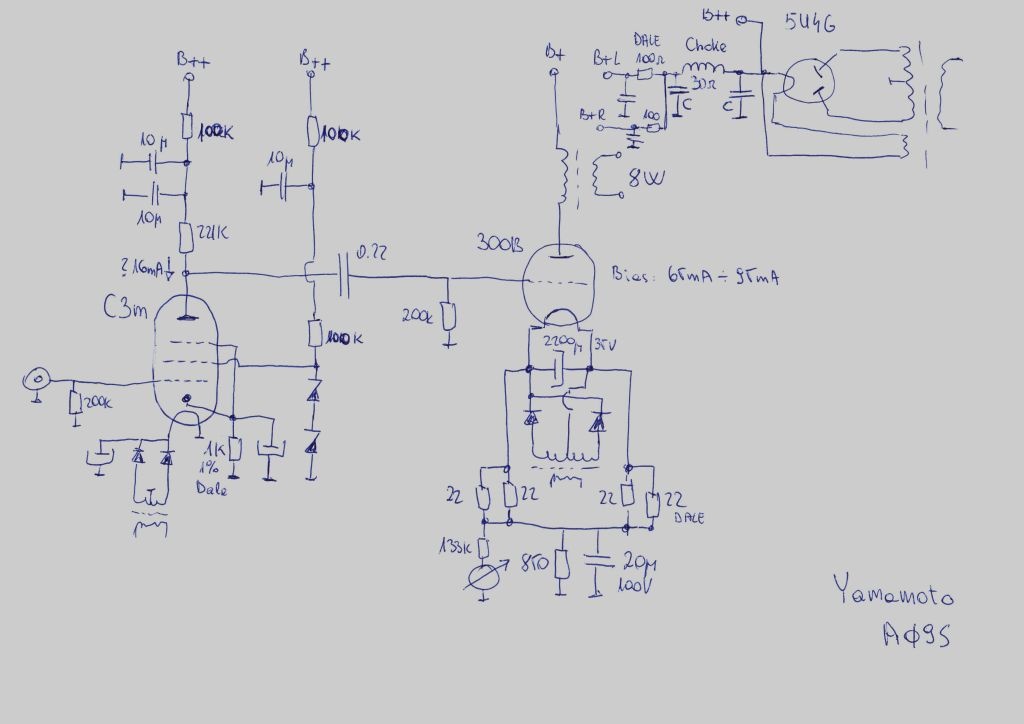 B++
5U4G
B++
B++
B+
B+L
DALE
100Ω
Choke
30Ω
C
C
B+R
100
100K
100K
10μ
10μ
10μ
8W
221K
0.22
300B
? 16mA
Bias: 65mA ÷ 95mA
C3m
200K
100K
2200μ
35V
200K
1K
1%
Dale
22
22
22
22
DALE
133K
850
20μ
100V
Yamamoto
AΦ9S